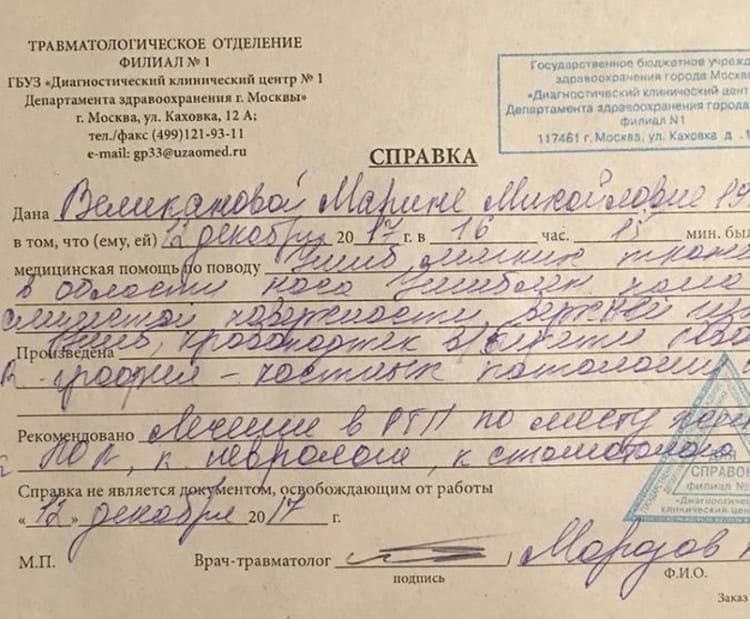 ТРАВМАТОЛОГИЧЕСКОЕ ОТДЕЛЕНИЕ
ФИЛИАЛ № 1
ГБУЗ «Диагностический клинический центр № 1
Департамента здравоохранения г. Москвы»
г. Москва, ул. Каховка, 12 А;
тел./факс (499)121-93-11
e-mail: gp33@uzaomed.ru
Государственное бюджетное учрежд
здравоохранения города Москв
«Диагностический клинический цент
Департамента здравоохранения города
филиал N1
117461 г. Москва, ул. Каховка д
СПРАВКА
Дана Великановой Марине Михайловне 19
в том, что (ему, ей) 12 декабря 2017 г. в 16 час. 15 мин. был
медицинская помощь по поводу Ушиб мягких ткане
в области носа Ушибл
слизистой поверхности верхней
Произведена Ушиб, кровоподтек в области
R графия – костных патологии
Рекомендовано Лечение в РТП по месту
к неврологу, к стоматологу
Справка не является документом, освобождающим от работы
«12» декабря 2017 г.
СПРАВО
филиал №
«Диагностическ
клинический цен
М.П. Врач-травматолог Морозов
подпись Ф.И.О.
Заказ